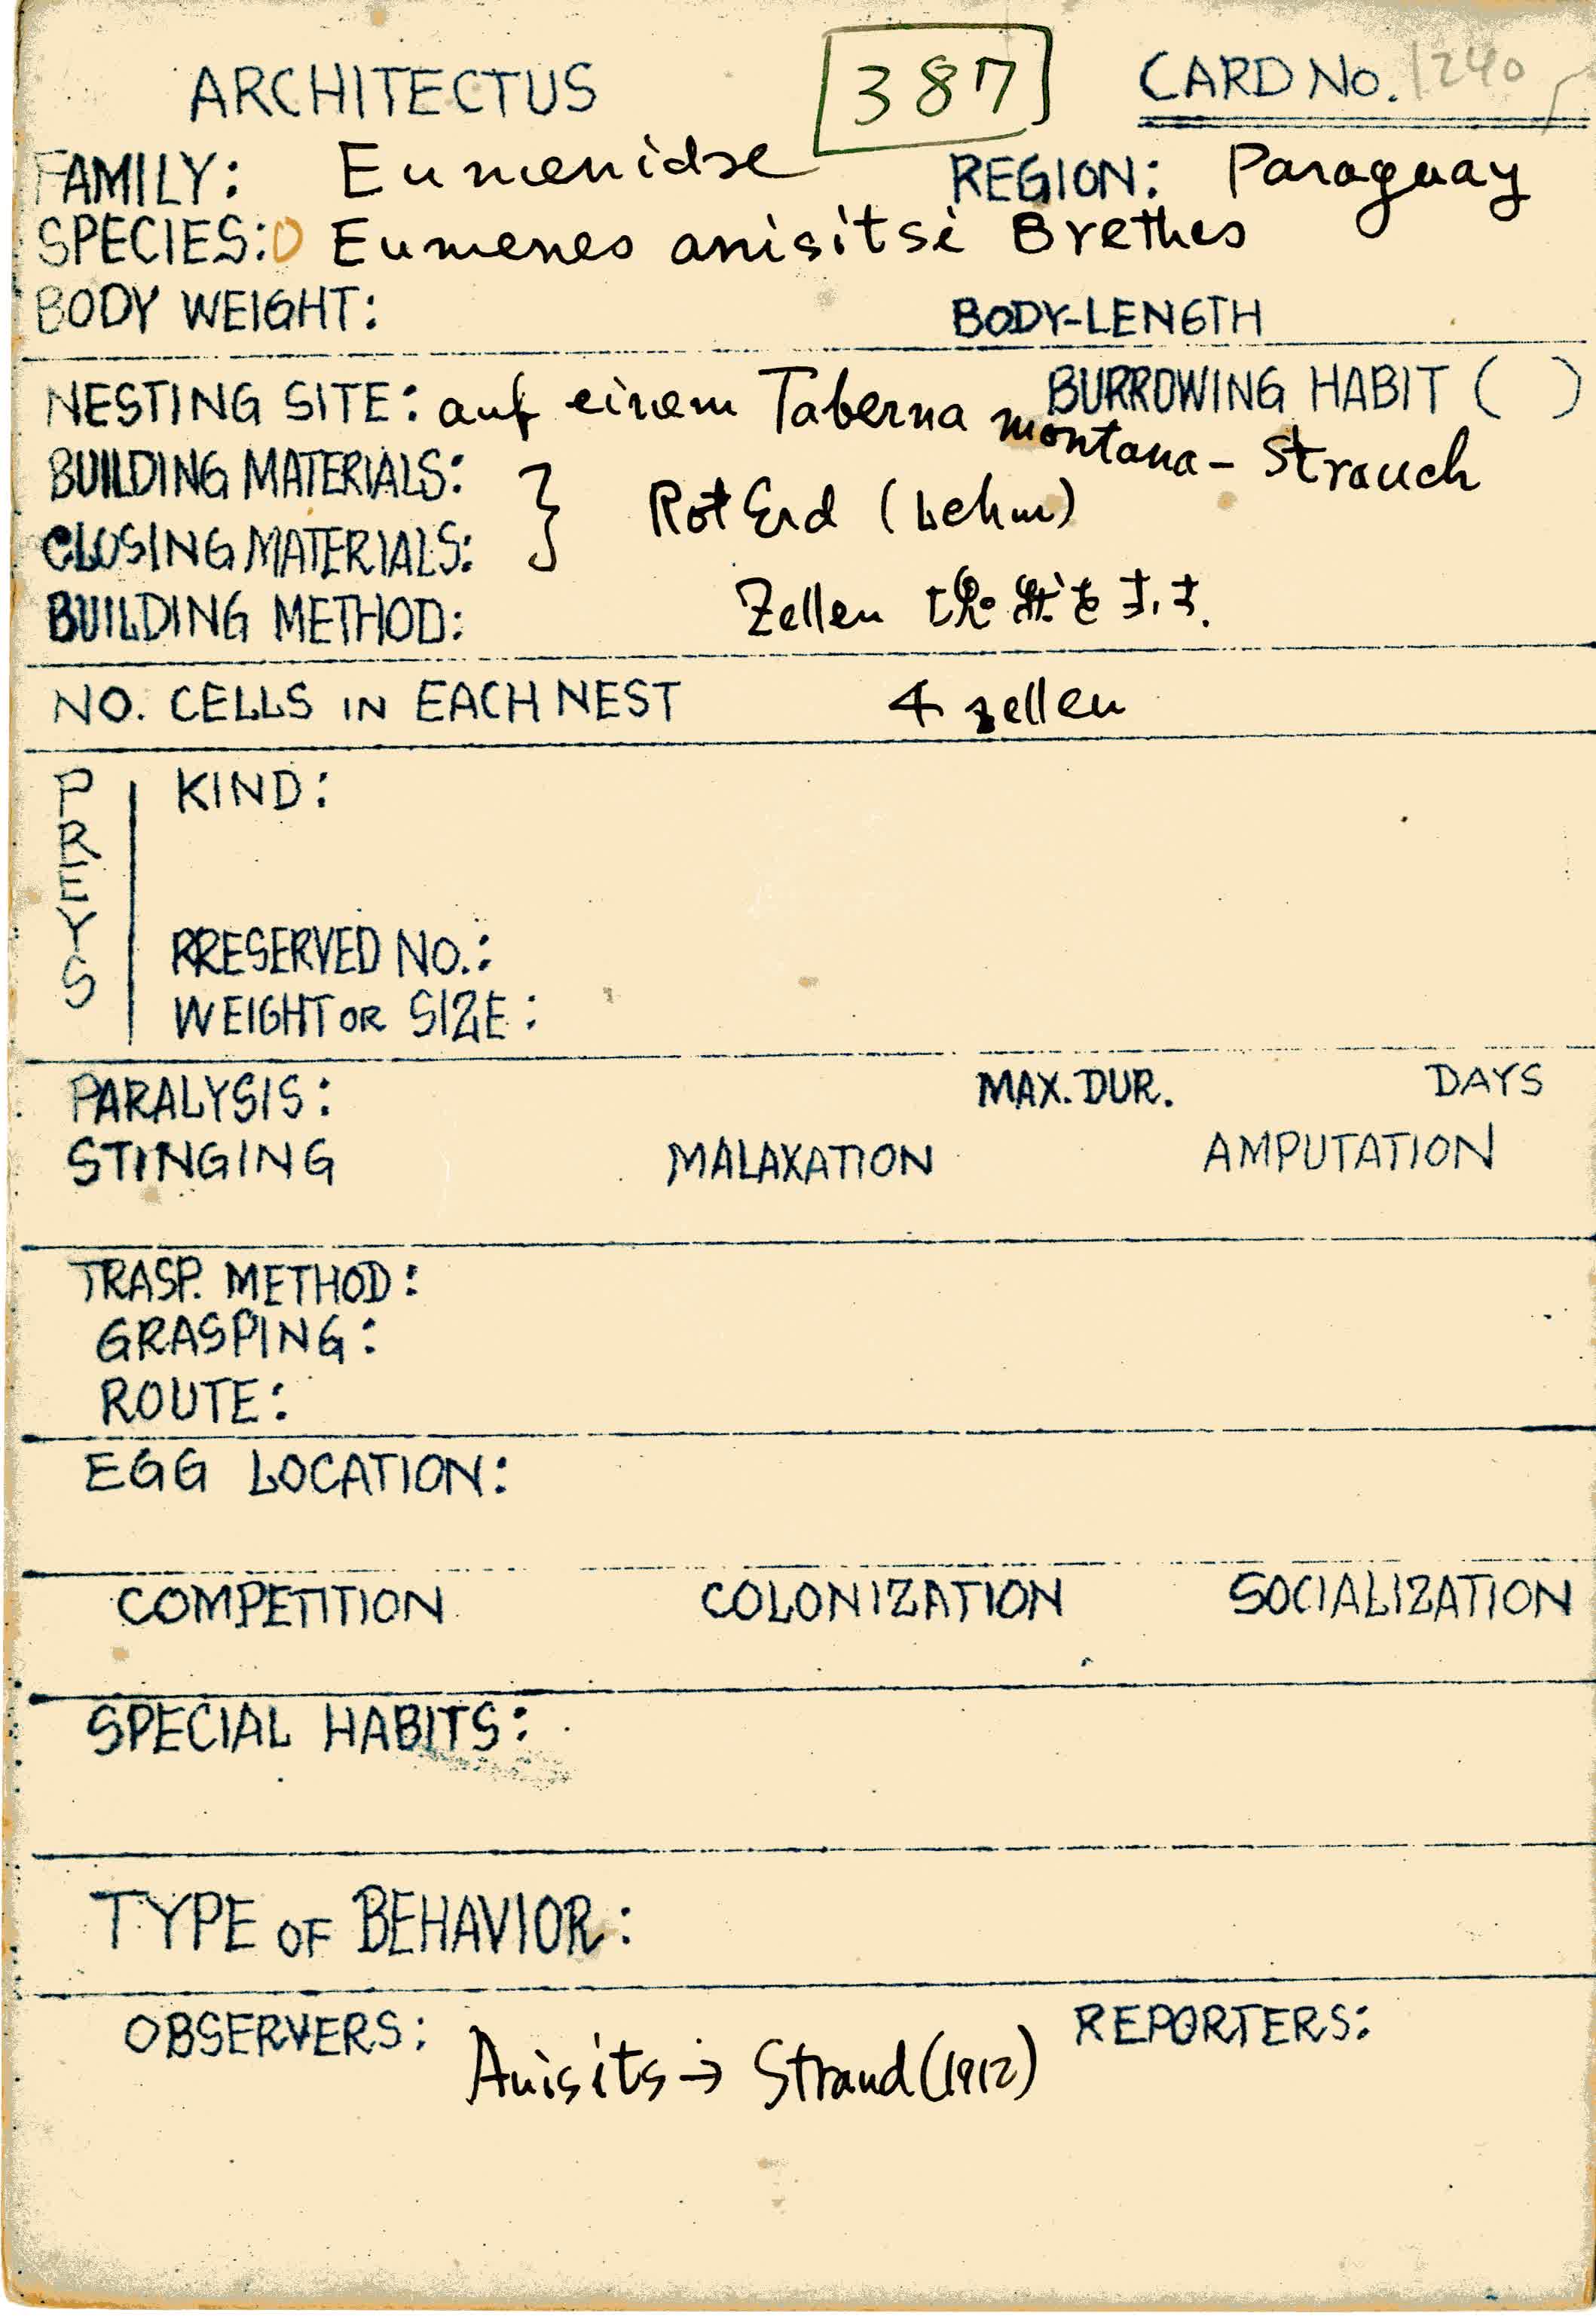 ARCHITECTUS 387 CARD NO. 1240
FAMILY: Eumenidae REGION: Paraguay
SPECIES: Eumenes anisitsi Brethes
BODY WEIGHT: BODY-LENGTH
NESTING SITE: auf einem Taberna montana-Strauch BURROWING HABIT ( )
BUILDING MATERIALS:
CLOSING MATERIALS: } Rot Erd (Lehm)
BUILDING METHOD: Zellen
NO. CELLS IN EACH NEST 4 zellen
PREYS
KIND:
PRESERVED NO.:
WEIGHT OR SIZE:
PARALYSIS: MAX. DUR. DAYS
STINGING MALAXATION AMPUTATION
TRASP. METHOD:
GRASPING:
ROUTE:
EGG LOCATION:
COMPETITION COLONIZATION SOCIALIZATION
SPECIAL HABITS:
TYPE OF BEHAVIOR:
OBSERVERS: Anisits → Strand (1912) REPORTERS: